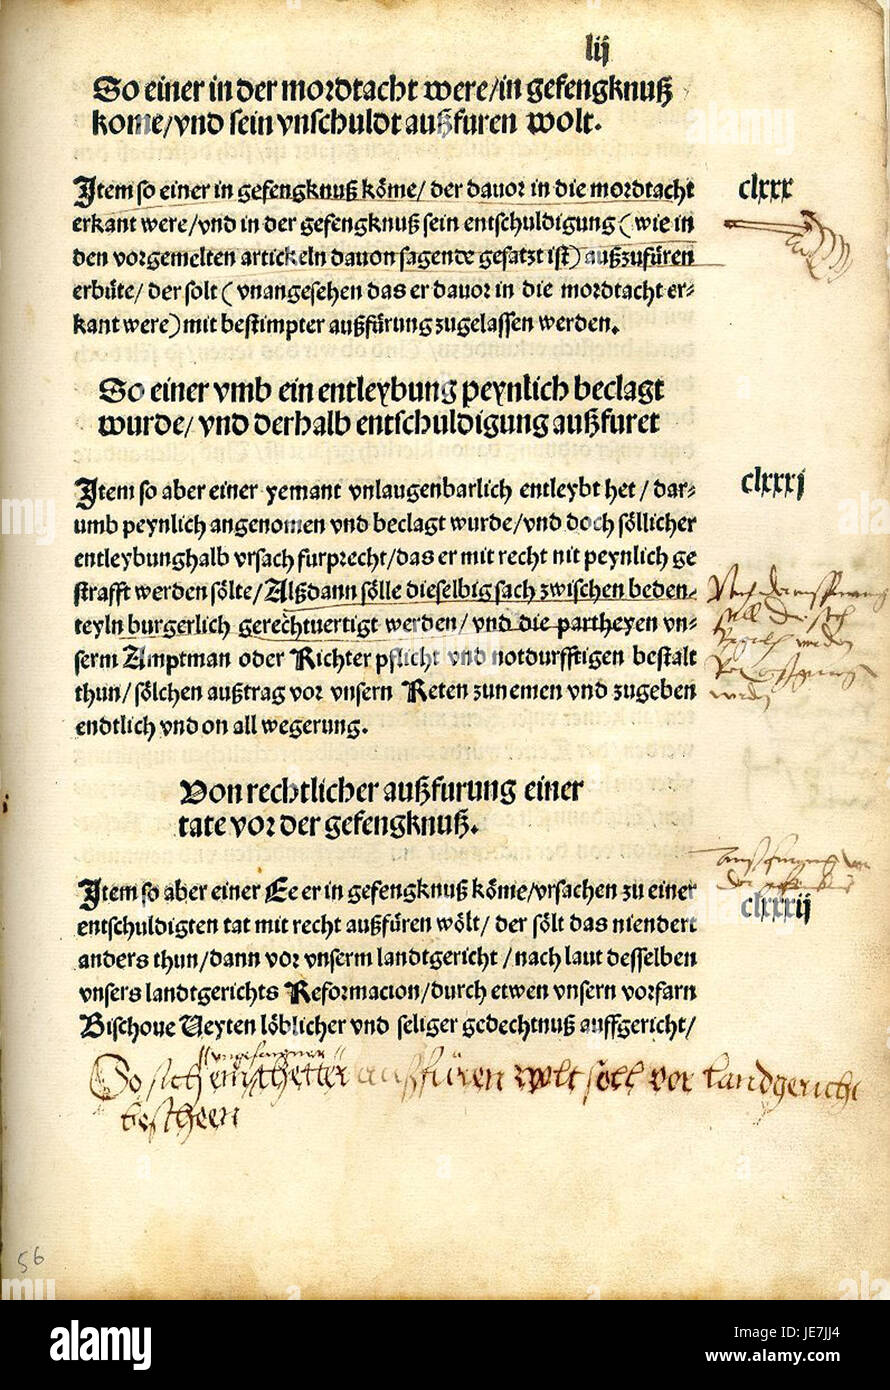 lij
So einer in der mordtacht were/in gefengknuß
kome/vnd sein vnschuldt außfuren wolt.
Item so einer in gefengknuß kõme/ der dauor in die mordtacht
clxxx
erkant were/vnd in der gefengknuß sein entschuldigung (wie in
den vorgemelten artickeln dauon sagende gesatzt ist) außzufüren
erbüte/ der solt (vnangesehen das er dauor in die mordtacht er-
kant were) mit bestimpter außfürung zugelassen werden.
So einer vmb ein entleybung peynlich beclagt
wurde/ vnd derhalb entschuldigung außfuret
Item so aber einer yemant vnlaugenbarlich entleybt het/ dar-
clxxxj
umb peynlich angenomen vnd beclagt wurde/vnd doch söllicher
entleybunghalb vrsach furprecht/das er mit recht nit peynlich ge
strafft werden sölte/Alßdann sölle dieselbig sach zwischen beden-
teyln burgerlich gerechtuertigt werden/ vnd die partheyen vn-
serm Amptman oder Richter pflicht vnd notdurfftigen bestalt
thun/sölchen außtrag vor vnsern Reten zunemen vnd zugeben
endtlich vnd on all wegerung.
Von rechtlicher außfurung einer
tate vor der gefengknuß.
Item so aber einer Ee er in gefengknuß köme/vrsachen zu einer
clxxxij
entschuldigten tat mit recht außfüren wölt/ der sölt das niendert
anders thun/dann vor vnserm landtgericht/nach laut desselben
vnsers landtgerichts Reformacion/durch etwen vnsern vorfarn
Bischoue Veyten löblicher vnd seliger gedechtnuß auffgericht/
So sich außfüren wolt soll vor landgericht
bescheen
56
alamy
Image ID: JE7JJ4
www.alamy.com